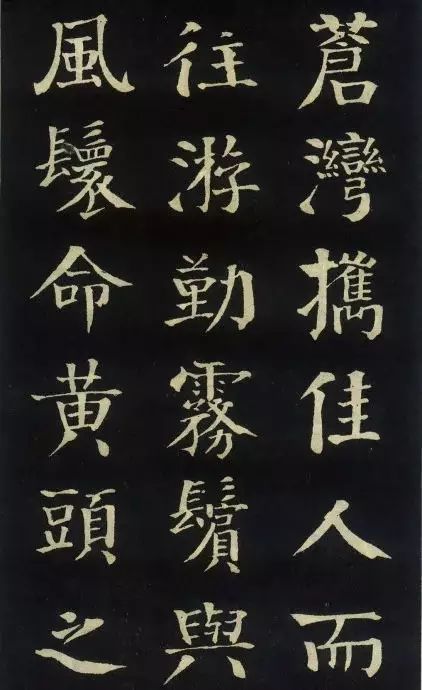 蒼灣攜佳人而
往游勤霧鬢與
風鬟命黄頭之